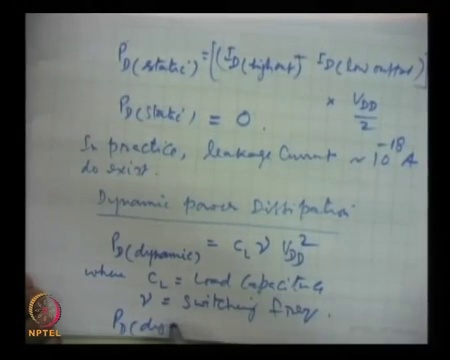 P_D(static) = [(I_D(high out) - I_D(low output)]
P_D(static) = 0. × V_DD/2
In practice, leakage current ~ 10^-18 A
do exist.
Dynamic power Dissipation
P_D(dynamic) = C_L ν V_DD^2
where C_L = Load Capacitance
ν = switching freq.
P_D(dy
NPTEL